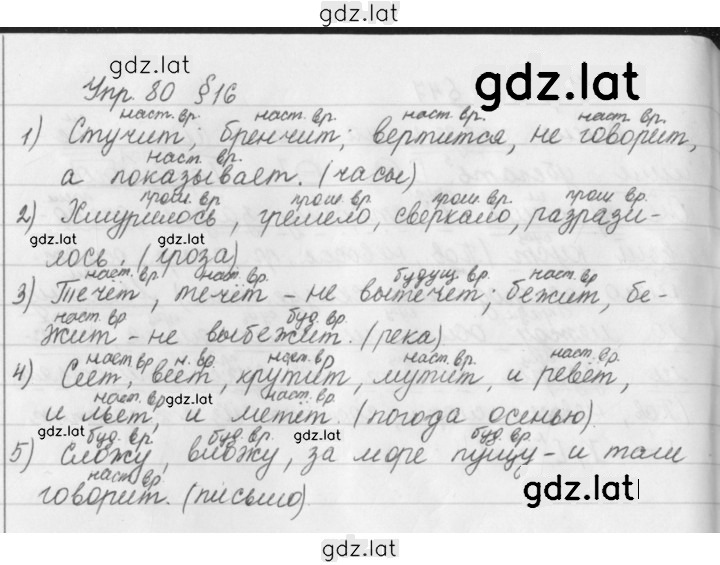 gdz.lat
gdz.lat
gdz.lat
Упр. 80 §16
наст. вр. наст. вр. наст. вр. наст. вр.
1) Стучит, бренчит; вертится, не говорит,
наст. вр.
а показывает. (часы)
прош. вр. прош. вр. прош. вр. прош. вр.
2) Хмурилось, гремело, сверкало, разрази-
gdz.lat gdz.lat
лось. (гроза)
наст. вр. наст. вр. будущ. вр. наст. вр.
3) Течёт, течёт - не вытечет; бежит, бе-
наст. вр. буд. вр.
жит - не выбежит. (река)
наст. вр. н. вр. наст. вр. наст. вр. наст. вр.
4) Сеет, веет, крутит, мутит, и ревёт,
наст. вр. наст. вр.
и льёт, и метёт. (погода осенью).
gdz.lat gdz.lat gdz.lat
буд. вр. буд. вр. буд. вр.
5) Сложу, вложу, за море пущу - и там
наст. вр.
говорит. (письмо).
gdz.lat
gdz.lat